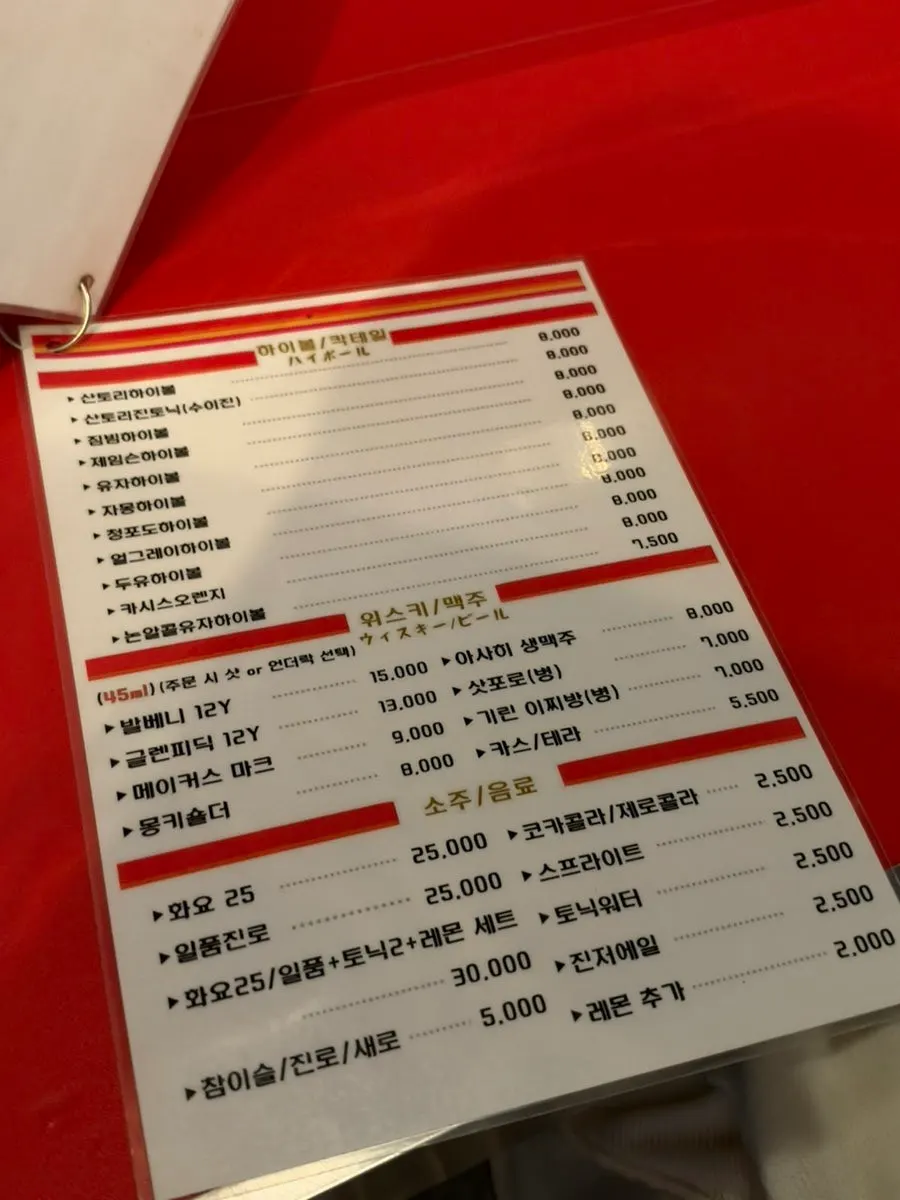 하이볼/칵테일
ハイボール
▸산토리하이볼 8.000
▸산토리진토닉(수이진) 8.000
▸짐빔하이볼 8.000
▸제임슨하이볼 8.000
▸유자하이볼 8.000
▸자몽하이볼 8.000
▸청포도하이볼 8.000
▸얼그레이하이볼 8.000
▸두유하이볼 8.000
▸카시스오렌지 8.000
▸논알콜유자하이볼 7.500
위스키/맥주
ウィスキー/ビール
(45ml) (주문 시 샷 or 언더락 선택)
▸발베니 12Y 15.000
▸글렌피딕 12Y 13.000
▸메이커스 마크 9.000
▸몽키숄더 8.000
▸아사히 생맥주 8.000
▸삿포로(병) 7.000
▸기린 이찌방(병) 7.000
▸카스/테라 5.500
소주/음료
▸화요 25 25.000
▸일품진로 25.000
▸화요25/일품+토닉2+레몬 세트
30.000
▸참이슬/진로/새로 5.000
▸코카콜라/제로콜라 2.500
▸스프라이트 2.500
▸토닉워터 2.500
▸진저에일 2.500
▸레몬 추가 2.000